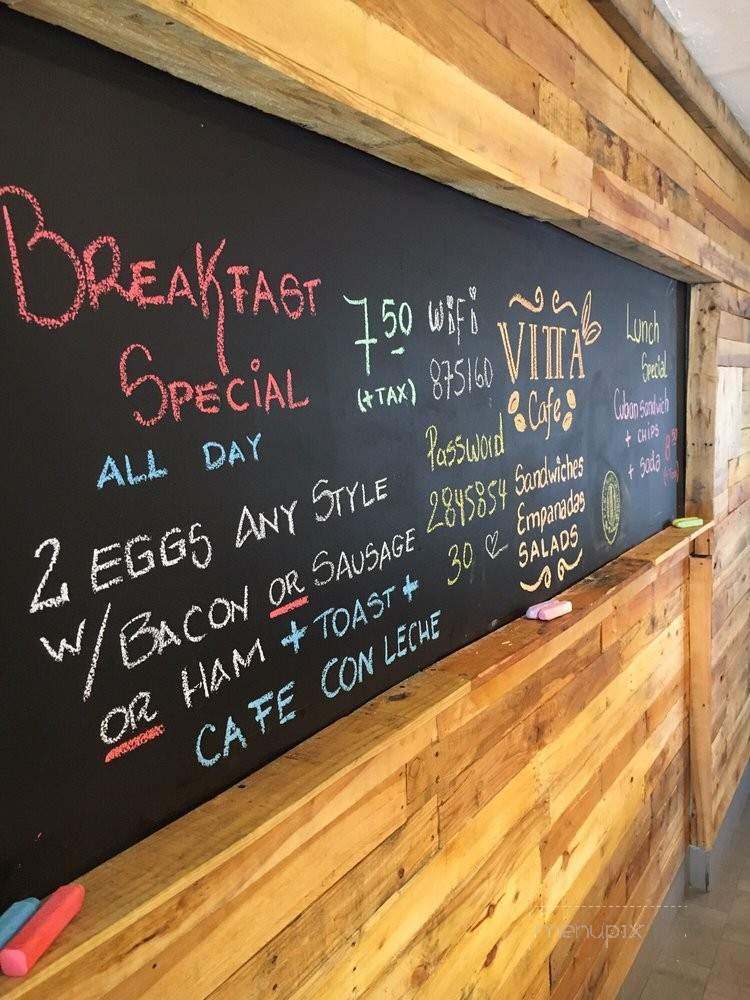 BREAKFAST
SPECIAL
ALL DAY
2 EGGS ANY STYLE
W/BACON OR SAUSAGE
OR HAM + TOAST +
CAFE CON LECHE
7.50
(+TAX)
WiFi
875160
Password
2845854
30
VITTA
Cafe
Sandwiches
Empanadas
SALADS
Lunch
Special
Cuban sandwich
+ chips
+ soda
8.50
menupix